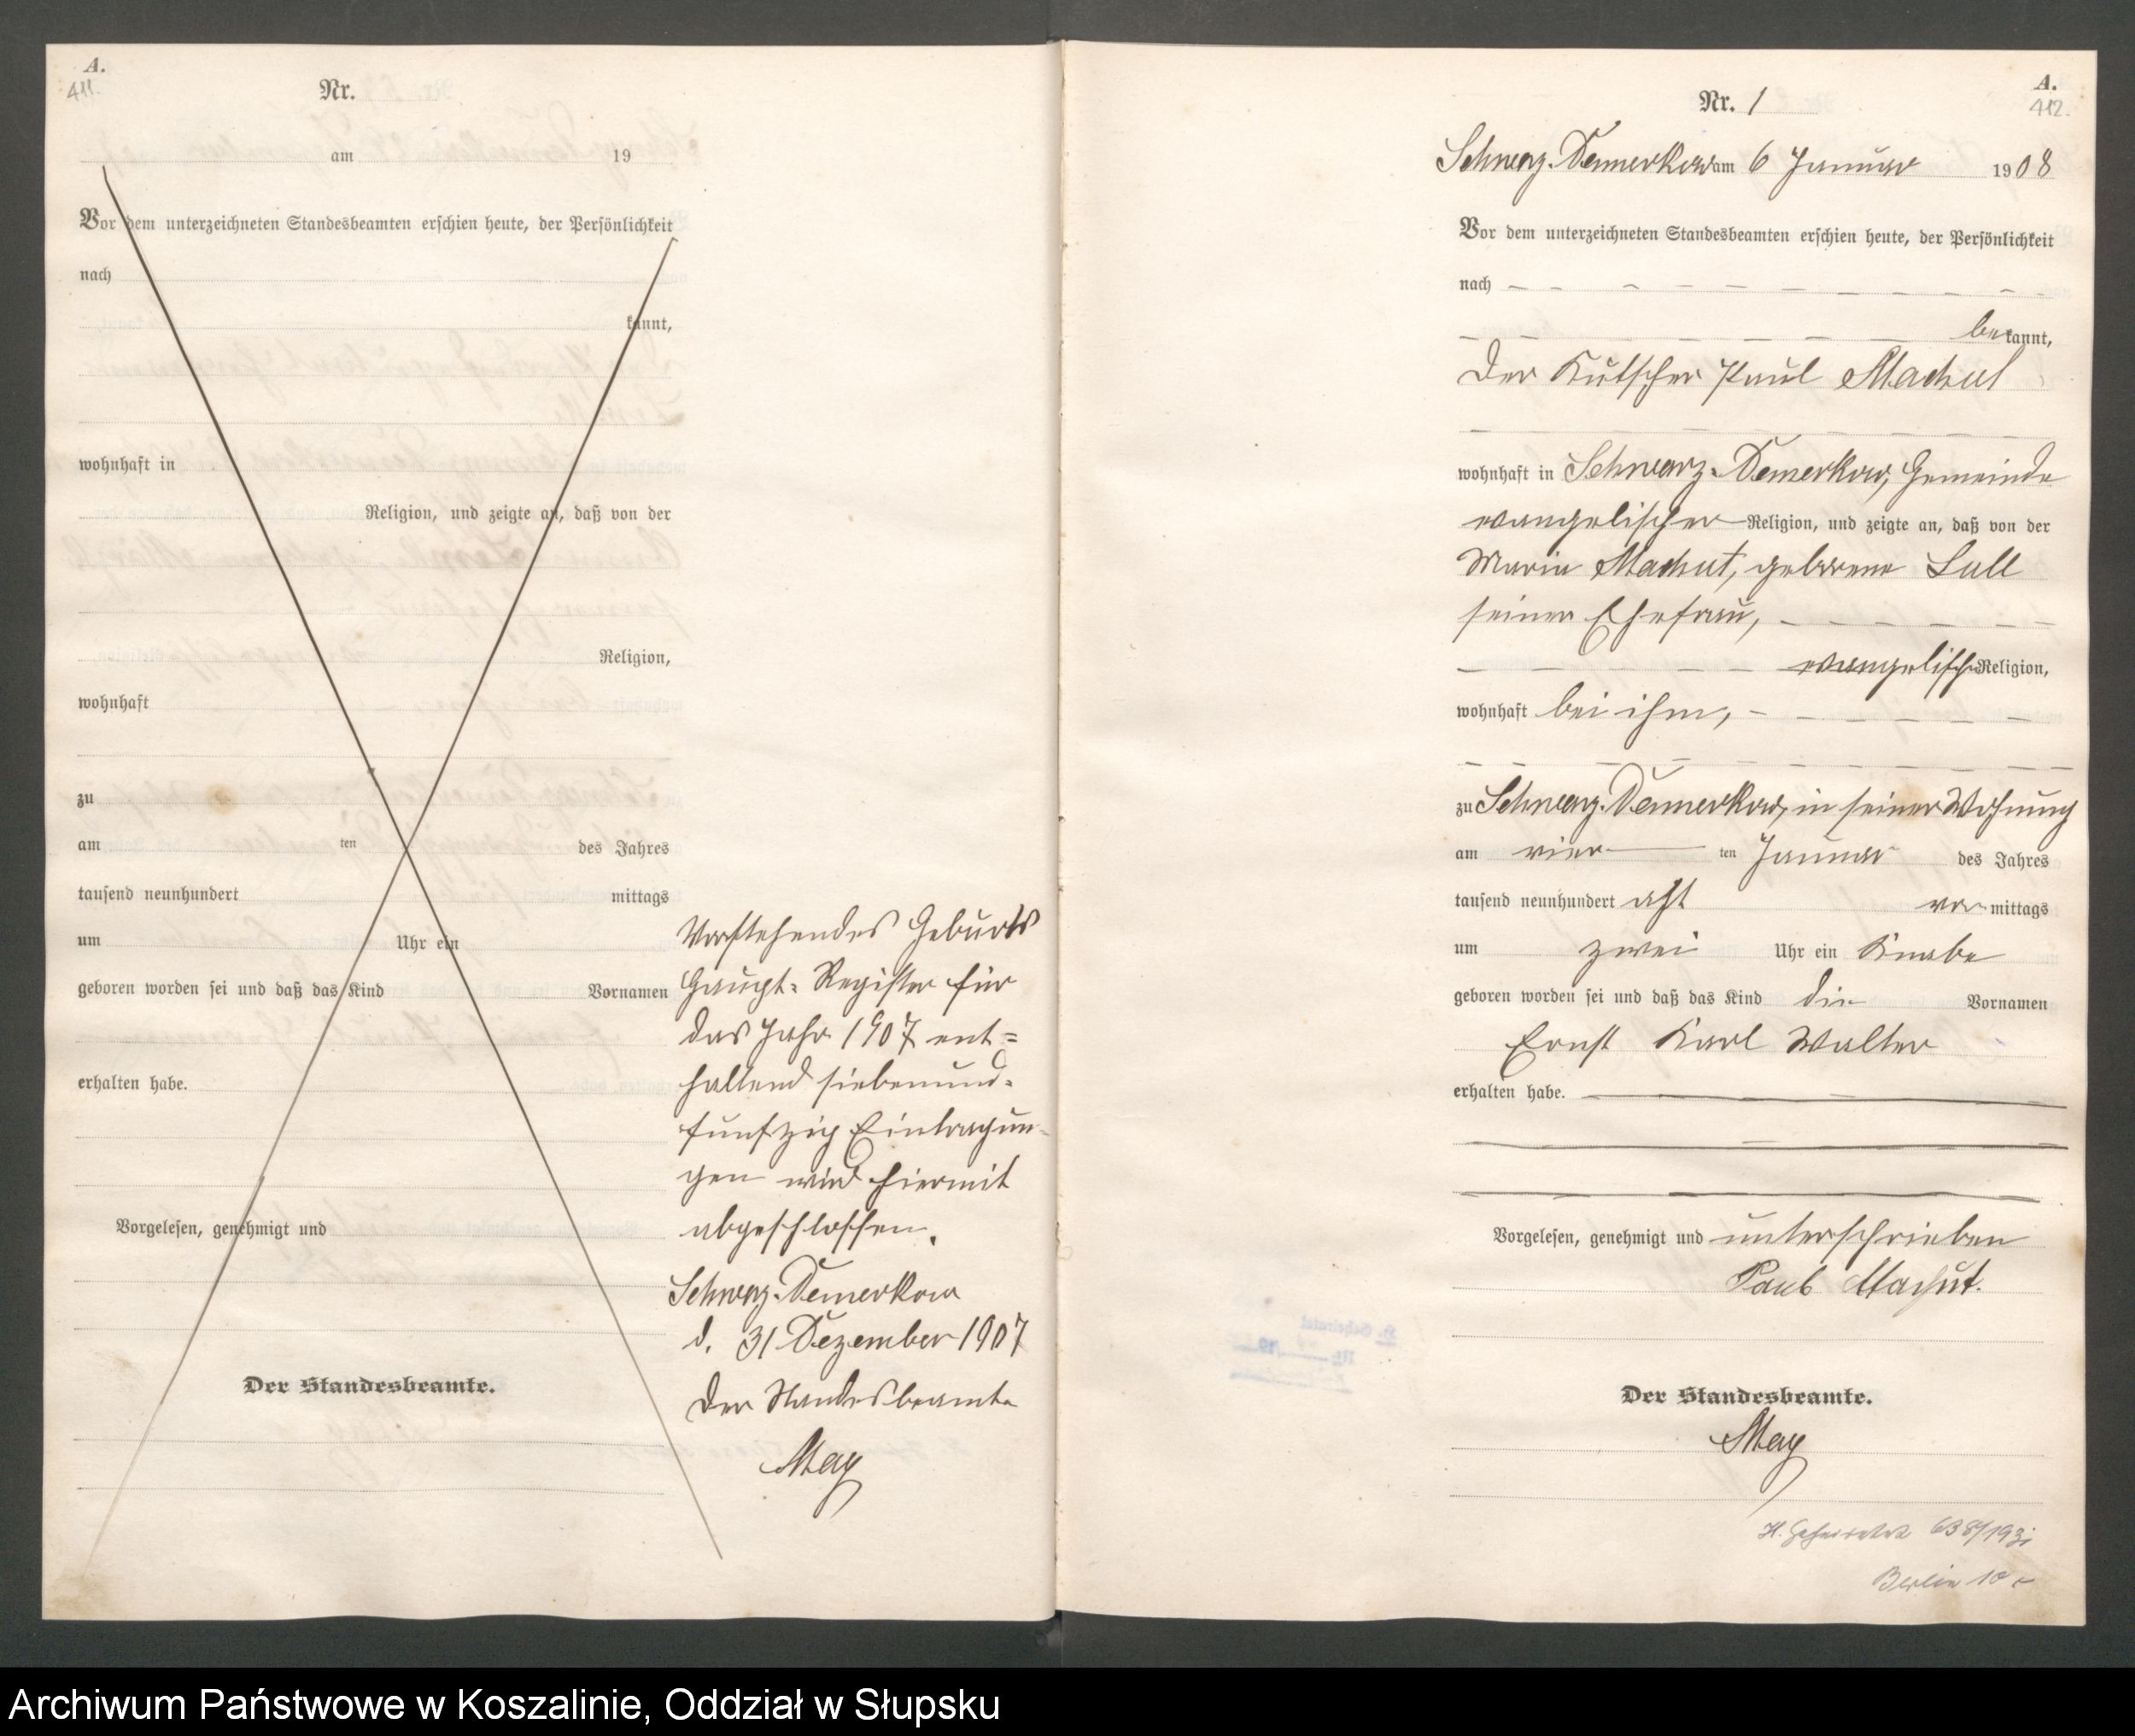 A.
411.
Nr.
am 19
Vor dem unterzeichneten Standesbeamten erschien heute, der Persönlichkeit
nach
kannt,
wohnhaft in
Religion, und zeigte an, daß von der
Religion,
wohnhaft
zu
am ten des Jahres
tausend neunhundert mittags
um Uhr ein
geboren worden sei und daß das Kind Vornamen
erhalten habe.
Vorgelesen, genehmigt und
Der Standesbeamte.
Vorstehendes Geburts
Haupt-Register für
das Jahr 1907 ent=
haltend siebenund-
fünfzig Eintragun-
gen wird hiermit
abgeschlossen.
Schwarz-Damerkow
d. 31 Dezember 1907
Der Standesbeamte
May
A.
412.
Nr. 1
Schwarz-Damerkow am 6 Januar 1908
Vor dem unterzeichneten Standesbeamten erschien heute, der Persönlichkeit
nach
bekannt,
Der Kutscher Paul Machut
wohnhaft in Schwarz-Damerkow, Gemeinde
evangelischer Religion, und zeigte an, daß von der
Maria Machut, geborene Lull
seiner Ehefrau,
evangelischer Religion,
wohnhaft bei ihm,
zu Schwarz-Damerkow, in seiner Wohnung
am vier ten Januar des Jahres
tausend neunhundert acht vor mittags
um zwei Uhr ein Knabe
geboren worden sei und daß das Kind die Vornamen
Ernst Karl Walter
erhalten habe.
Vorgelesen, genehmigt und unterschrieben
Paul Machut.
Der Standesbeamte.
May
Berlin 10
Archiwum Państwowe w Koszalinie, Oddział w Słupsku